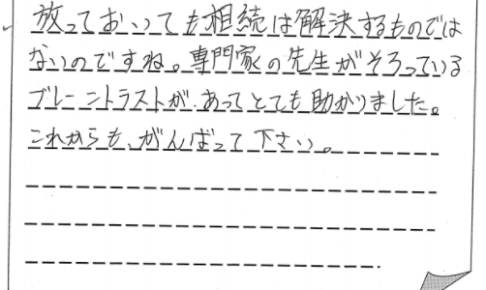 放っておいても相続は解決するものでは
ないのですね。専門家の先生がそろっている
ブレーントラストが、あってとても助かりました。
これからも、がんばって下さい。